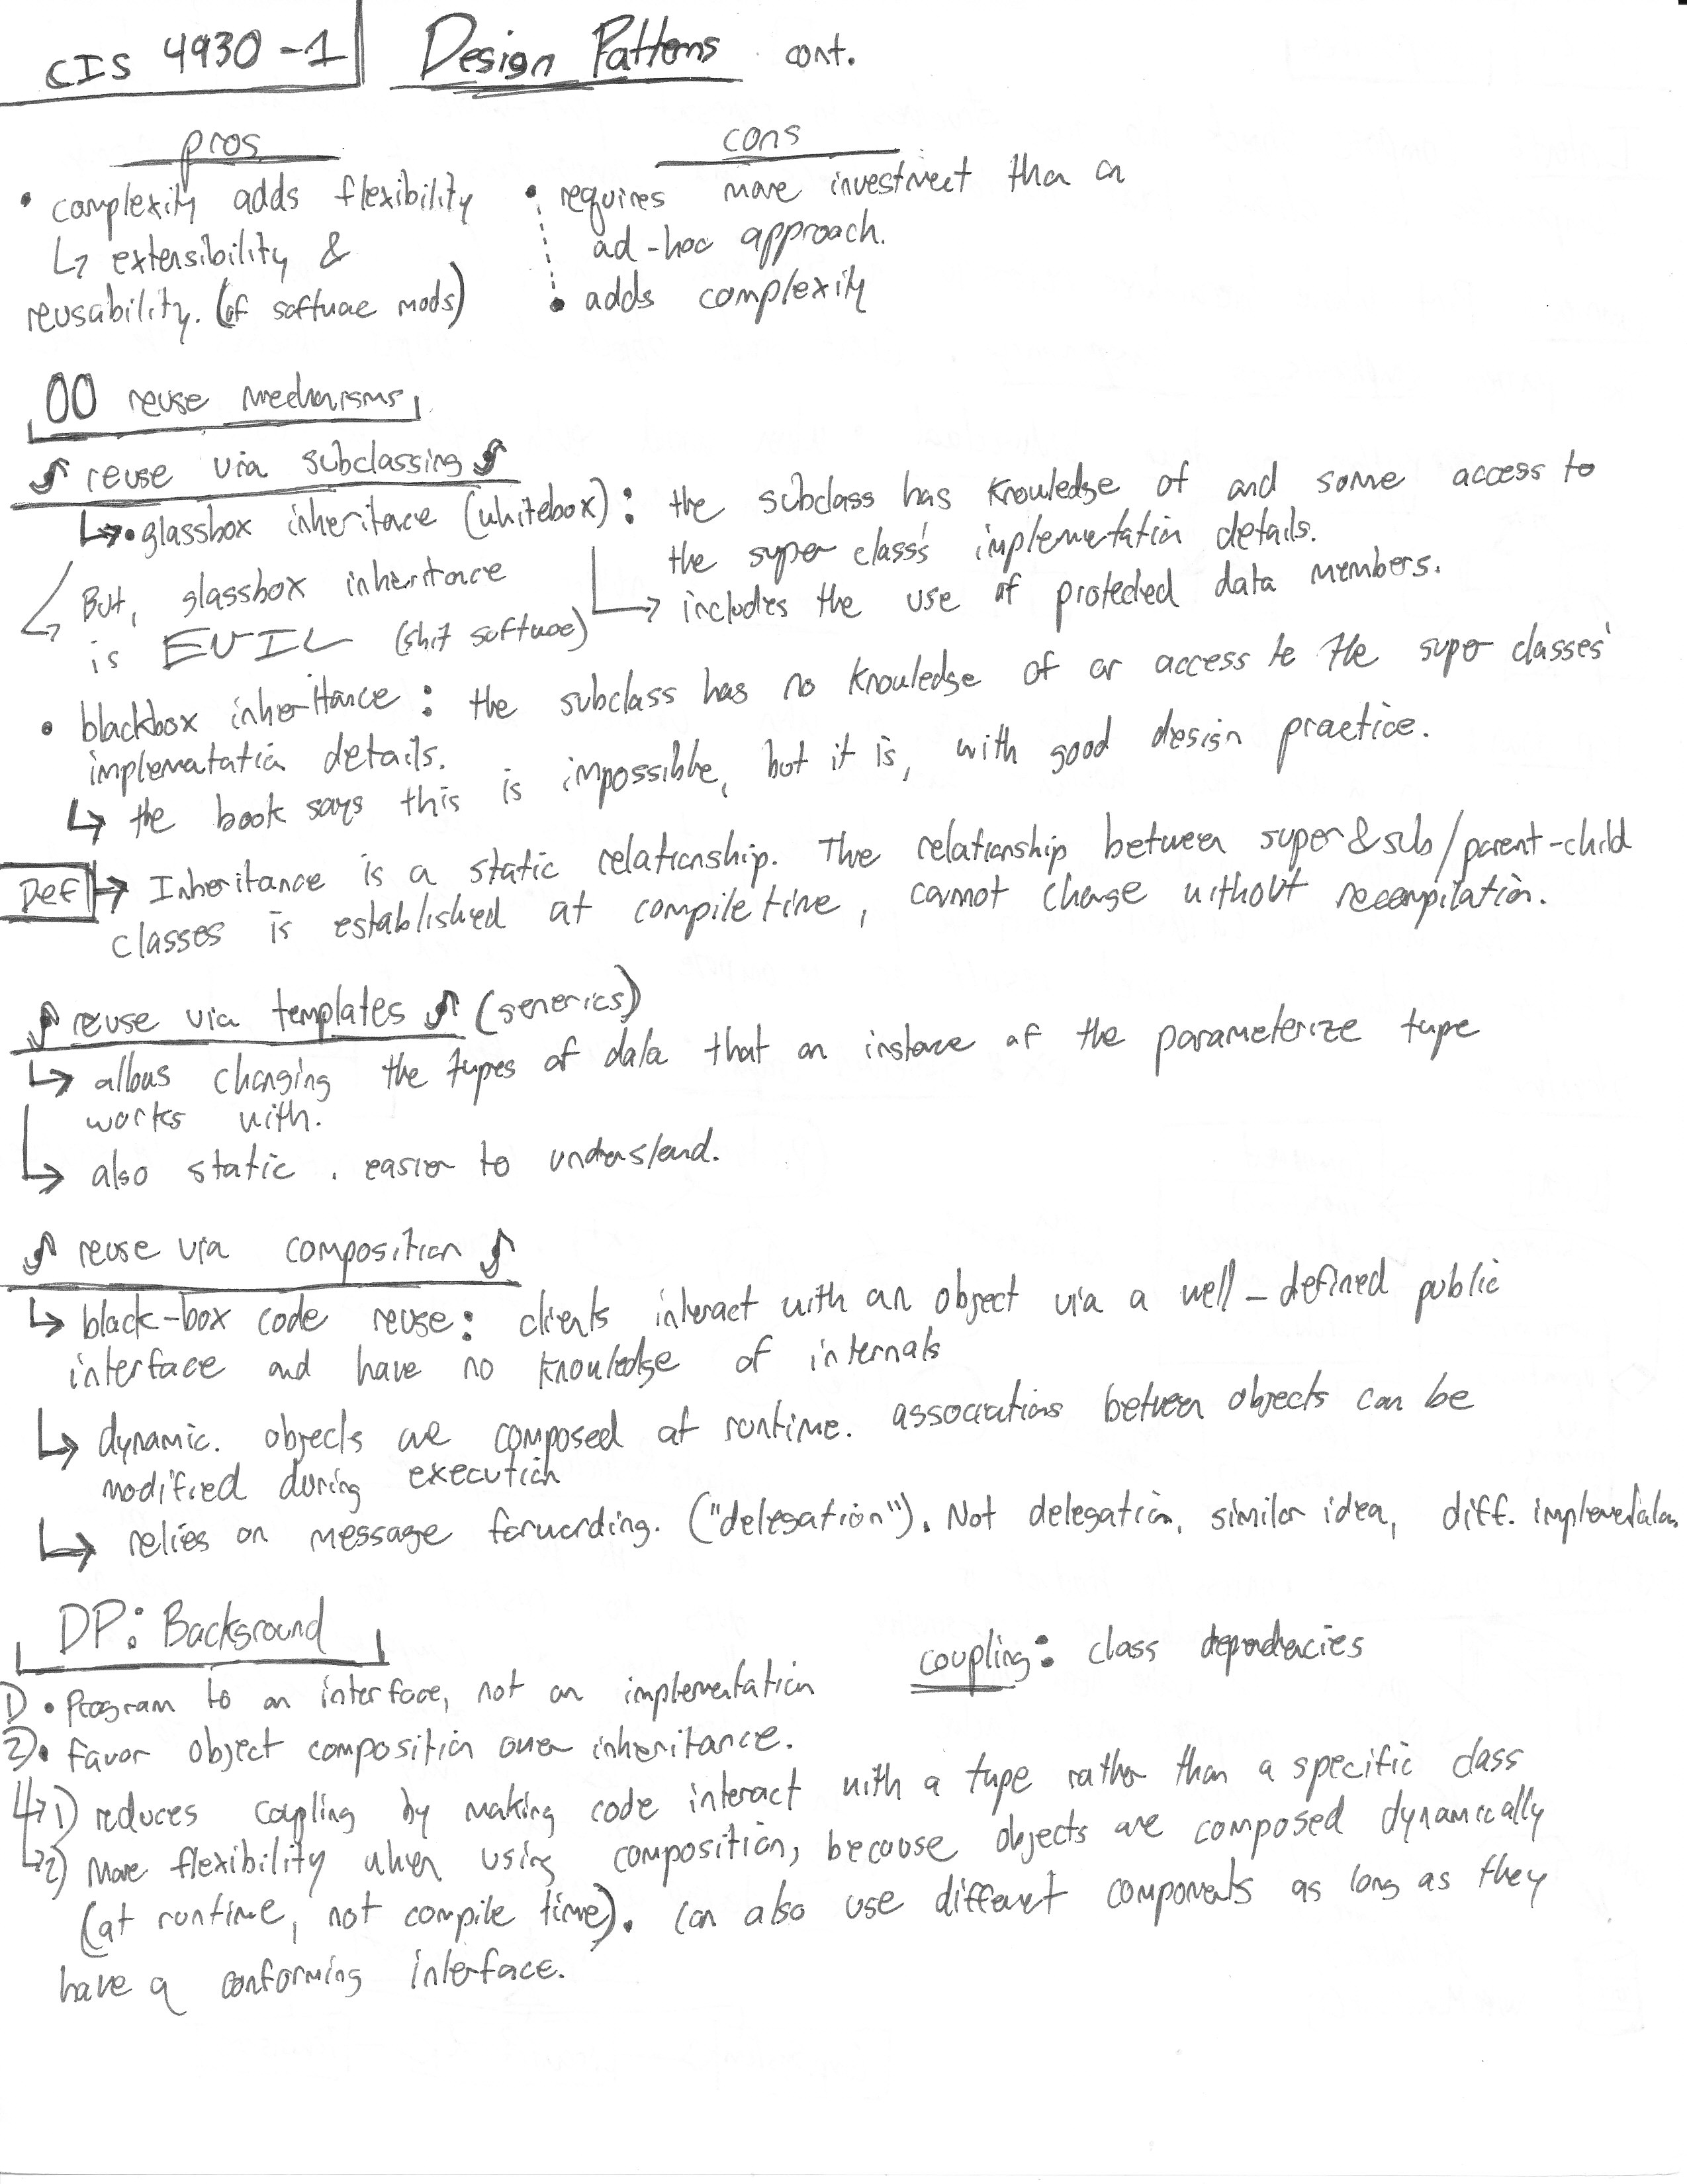 CIS 4930-1
Design Patterns cont.
pros
• complexity adds flexibility
↳ extensibility &
reusability. (of software mods)
cons
• requires more investment than an
ad-hoc approach.
• adds complexity
OO reuse mechanisms
reuse via subclassing
↳ • glassbox inheritance (whitebox): the subclass has knowledge of and some access to
the super class's implementation details.
↳ includes the use of protected data members.
But, glassbox inheritance
is EVIL (shit software)
• blackbox inheritance: the subclass has no knowledge of or access to the super classes'
implementation details.
↳ the book says this is impossible, but it is, with good design practice.
Def → Inheritance is a static relationship. The relationship between super&sub/parent-child
classes is established at compiletime, cannot change without recompilation.
reuse via templates (generics)
↳ allows changing the types of data that an instance of the parameterize type
works with.
↳ also static. easier to understand.
reuse via composition
↳ black-box code reuse: clients interact with an object via a well-defined public
interface and have no knowledge of internals
↳ dynamic. objects are composed at runtime. associations between objects can be
modified during execution
↳ relies on message forwarding. ("delegation"). Not delegation, similar idea, diff. implementation
DP: Background
coupling: class dependencies
1) • Program to an interface, not an implementation
2) • favor object composition over inheritance.
↳ 1) reduces coupling by making code interact with a type rather than a specific class
↳ 2) More flexibility when using composition, because objects are composed dynamically
(at runtime, not compile time). can also use different components as long as they
have a conforming interface.